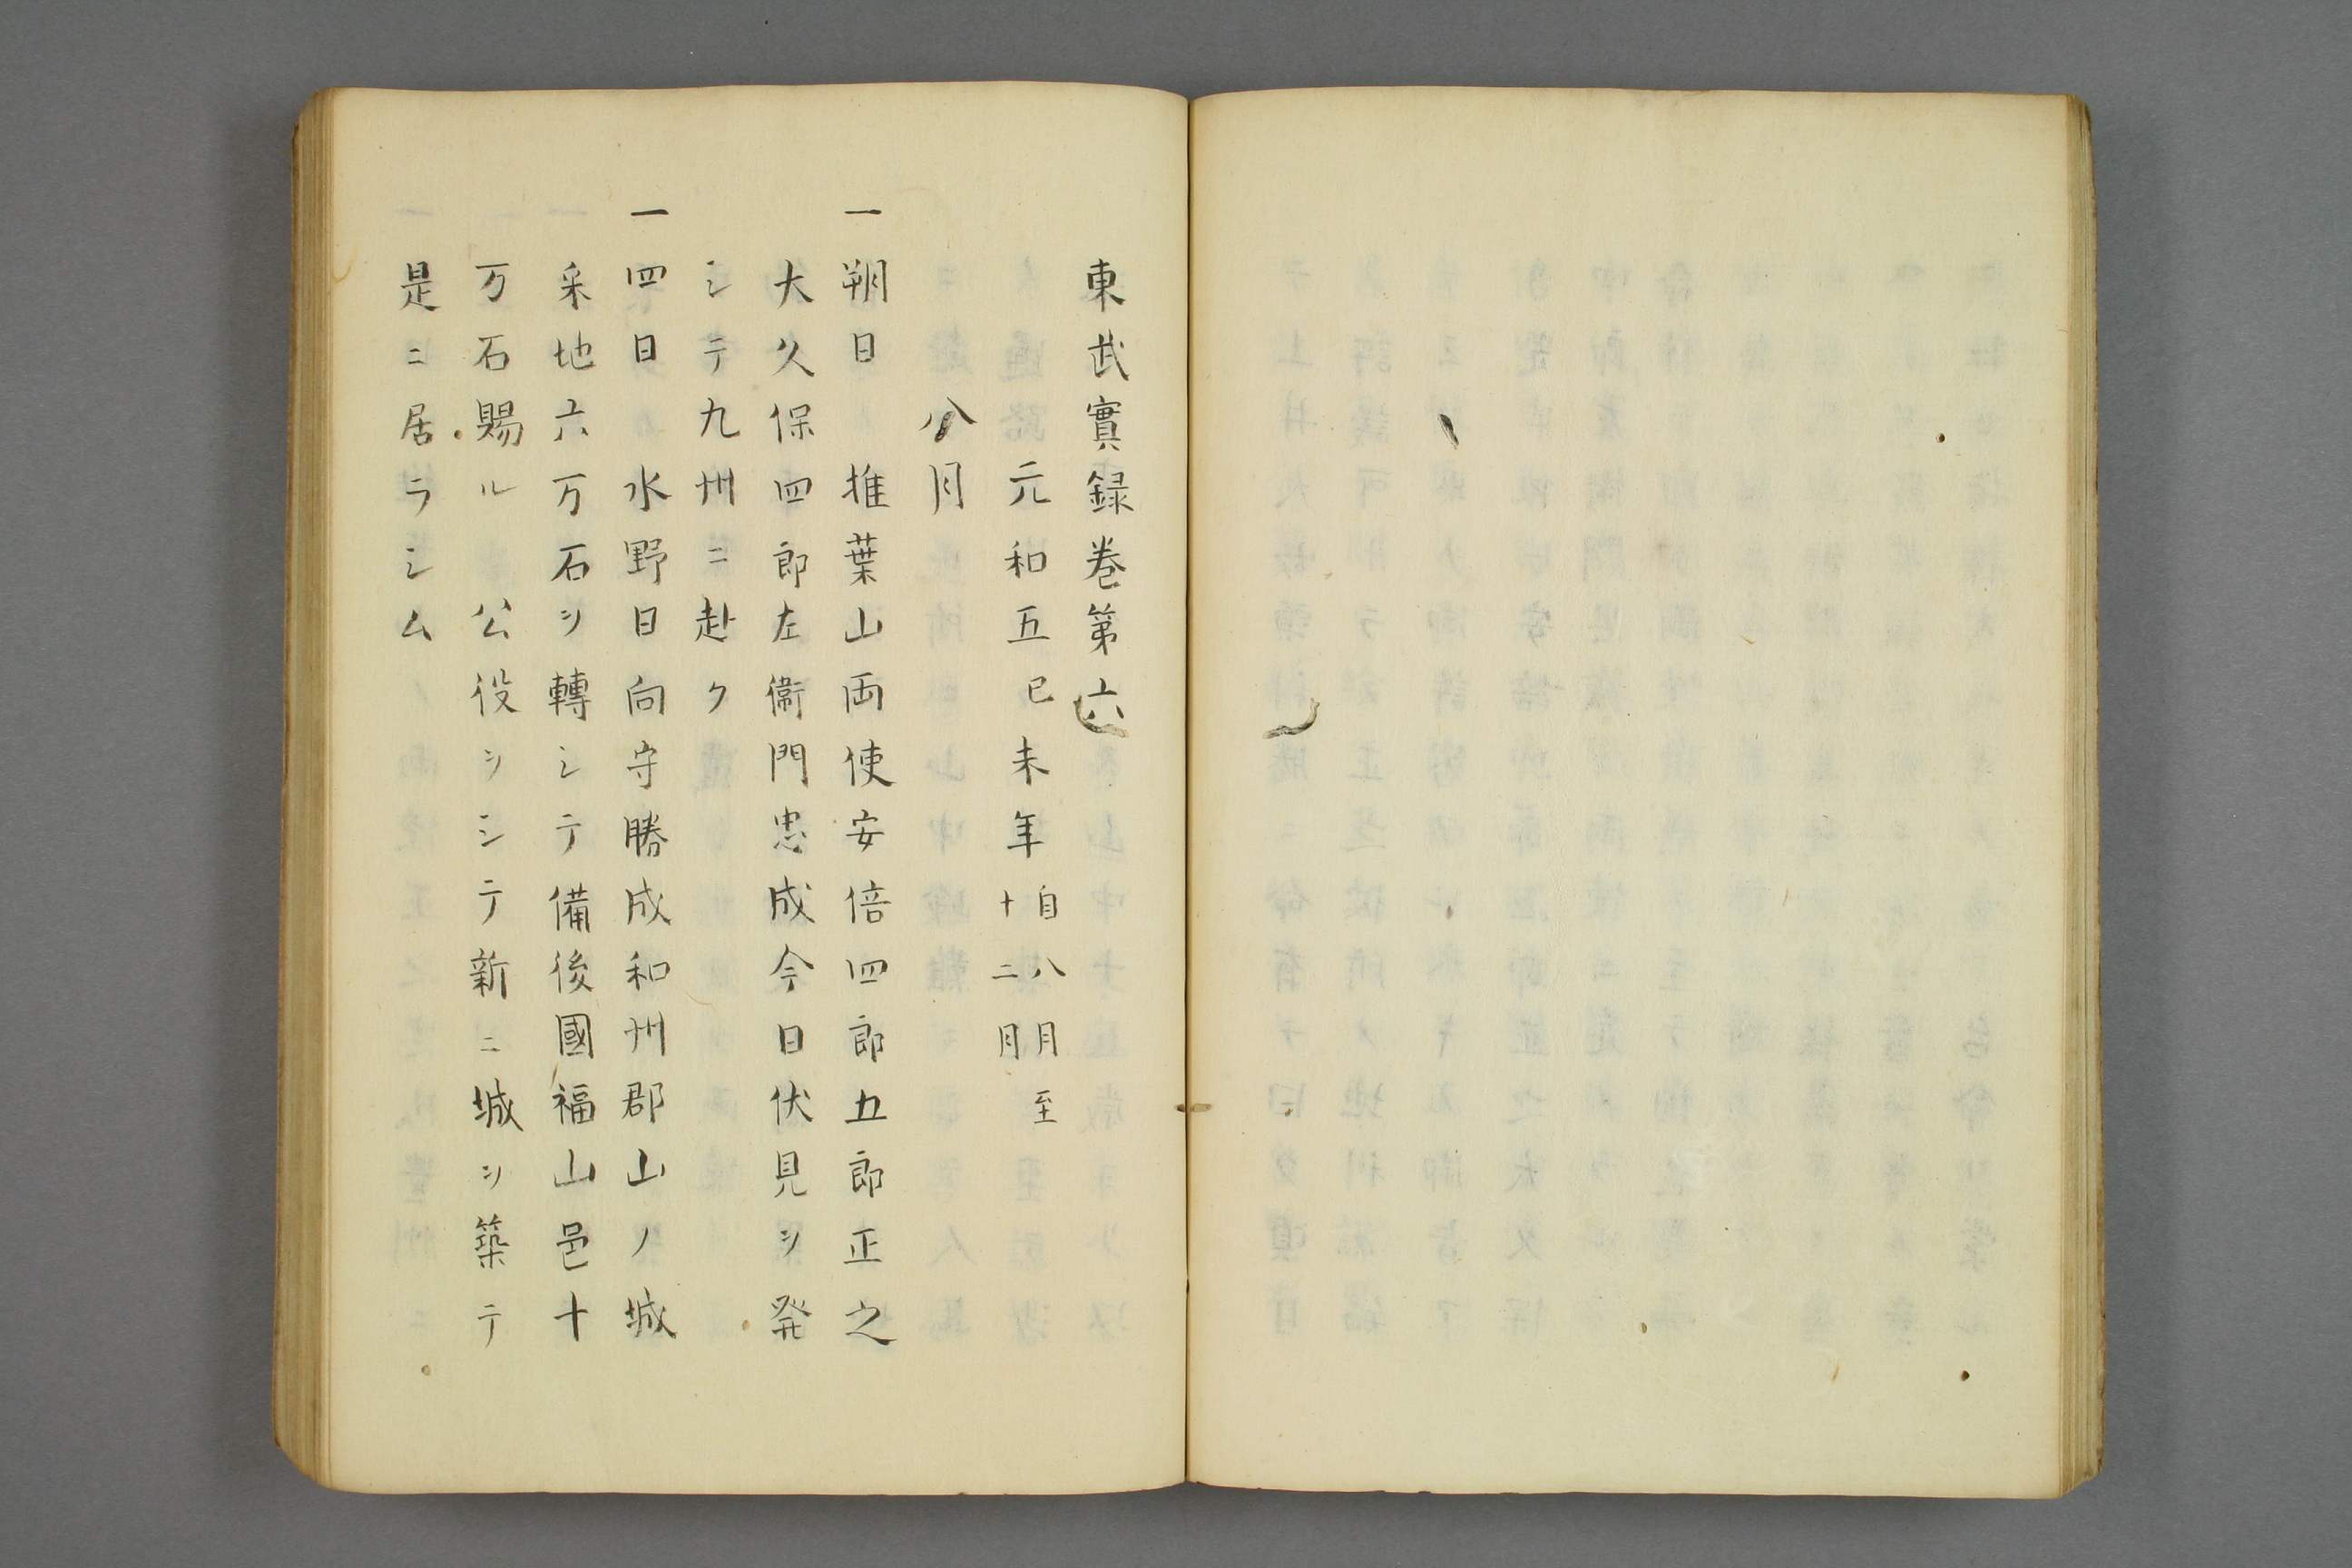 東武實録巻第六
元和五己未年自八月至十二月
八月
一朔日　推葉山両使安倍四郎五郎正之
大久保四郎左衛門忠成今日伏見ヲ発
シテ九州ニ赴ク
一四日　水野日向守勝成和州郡山ノ城
采地六万石ヲ轉シテ備後國福山邑十
万石賜ル　公役ヲシテ新ニ城ヲ築テ
是ニ居ラシム